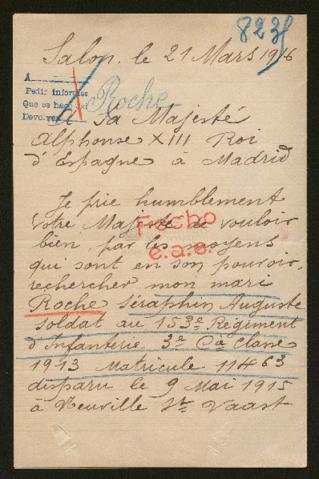 823
Salon, le 21 Mars 1916
A
Pedir informes
Que se haga
Devolver
Roche
A Sa Majesté
Alphonse XIII Roi
d'Espagne à Madrid
Je prie humblement
Votre Majesté de vouloir
bien, par les moyens
Fecho
qui sont en son pouvoir,
e.a.s.
rechercher mon mari
Roche Séraphin Auguste
soldat au 153e Régiment
d'Infanterie 3e Cie Classe
1913 Matricule 11463
disparu le 9 Mai 1915
à Neuville St Vaast